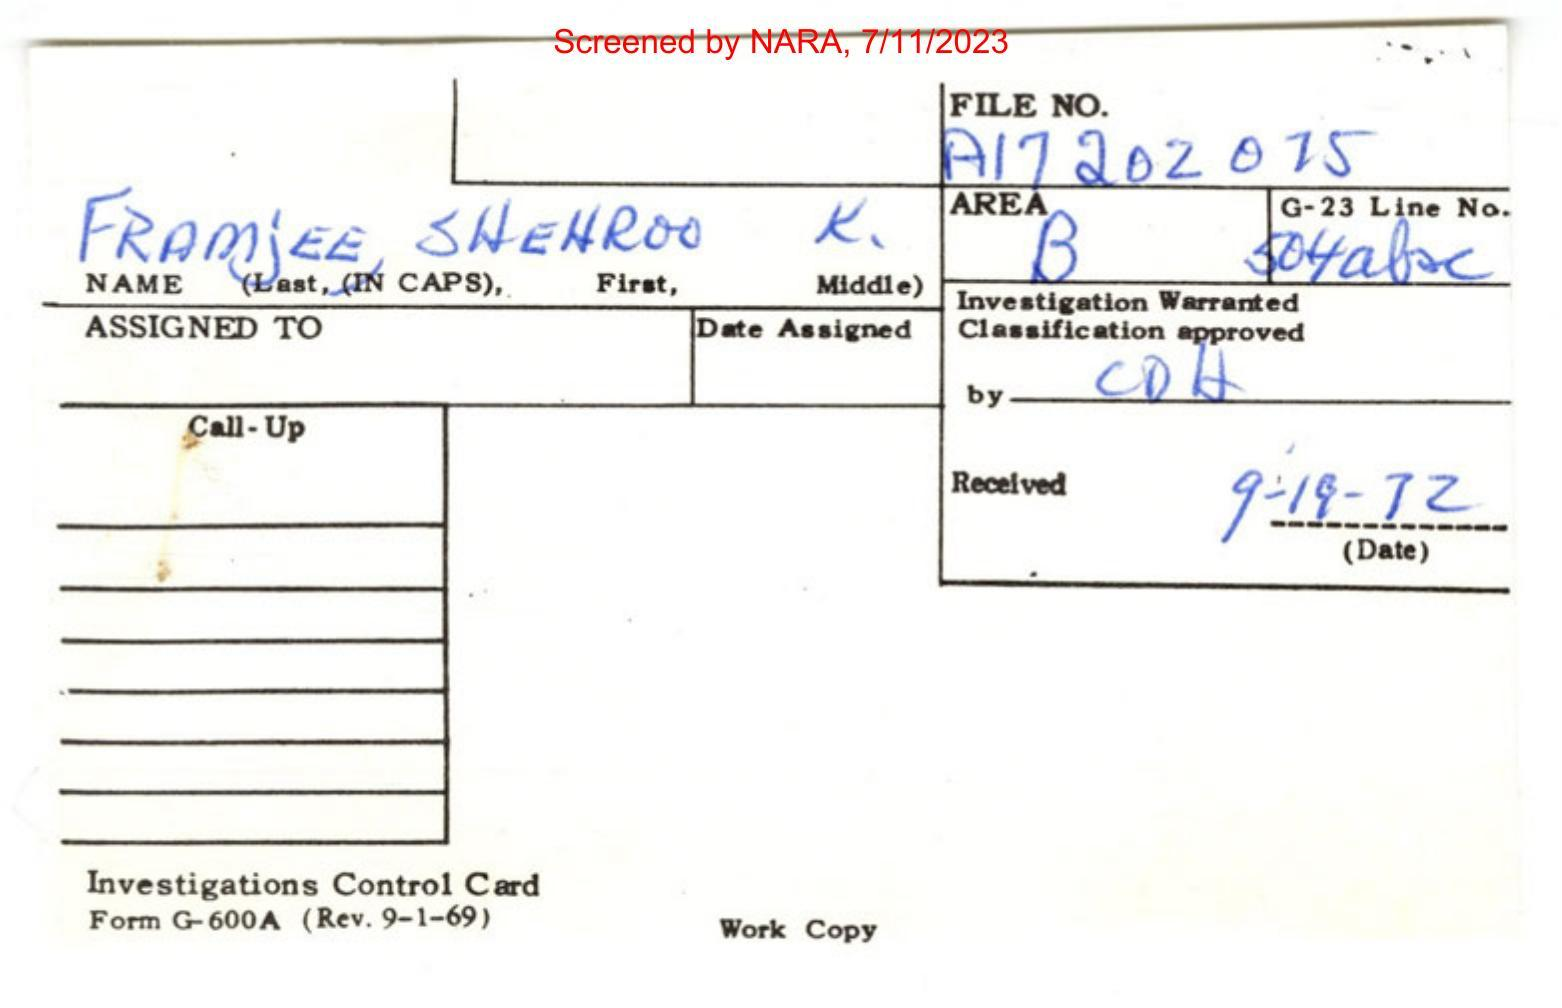 Screened by NARA, 7/11/2023
FILE NO.
A17 202 075
FRAMJEE, SHEHROO K.
NAME (Last, (IN CAPS), First, Middle)
AREA
B
G-23 Line No.
504abc
ASSIGNED TO
Date Assigned
Investigation Warranted
Classification approved
by CDH
Call-Up
Received 9-19-72
(Date)
Investigations Control Card
Form G-600A (Rev. 9-1-69)
Work Copy